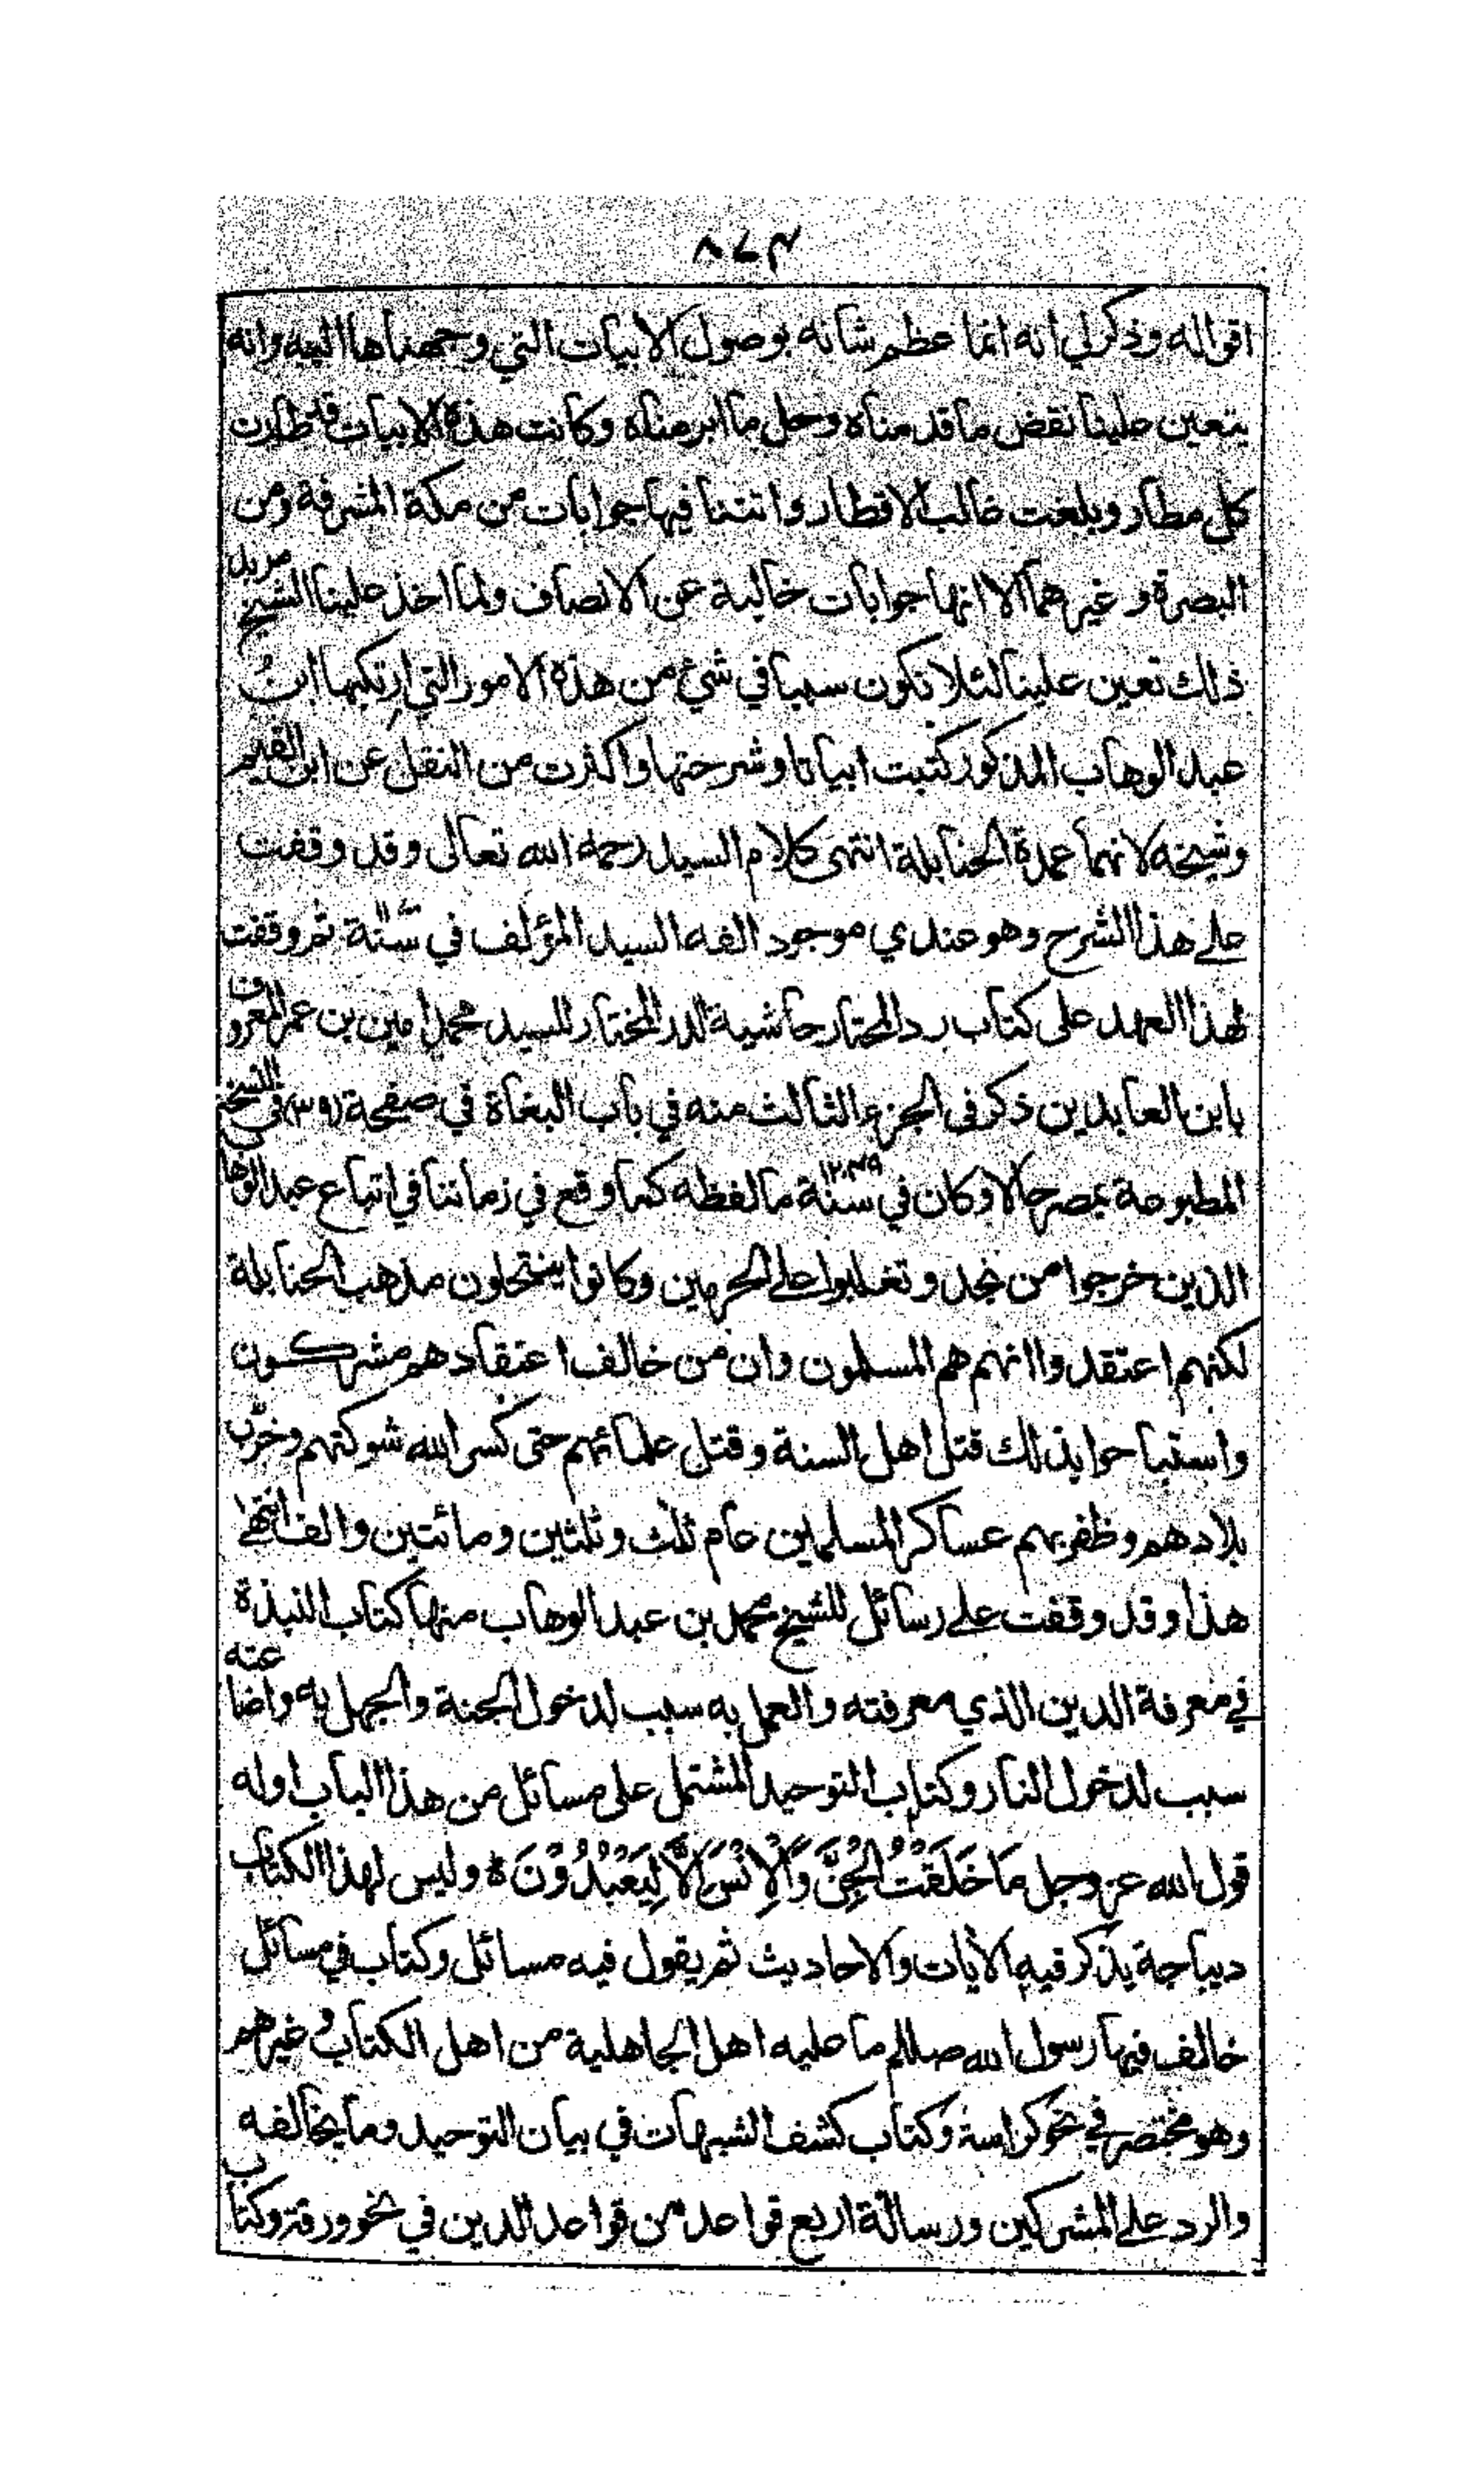 ٨٧٣
اقواله وذكر لي انه انما عظم شانه بوصول الابيات التي وجهناها اليه وانه
يتعين علينا نقض ما قدمناه وحل ما ابرمناه وكانت هذه الابيات قد طارت
كل مطار وبلغت غالب الاقطار واتتنا فيها جوابات من مكة المشرفة ومن
البصرة وغيرهما الا انها جوابات خالية عن الانصاف ولما اخذ علينا الشيخ مربد
ذلك تعين علينا لئلا نكون سببا في شئ من هذه الامور التي ارتكبها ابن
عبد الوهاب المذكور كتبت ابياتا وشرحتها واكثرت من النقل عن ابن القيم
وشيخه لانهما عمدة الحنابلة انتهى كلام السيد رحمه الله تعالى وقد وقفت
على هذا الشرح وهو عندي موجود الفه السيد المؤلف في سنة ثم وقفت
لهذا العهد على كتاب رد المحتار حاشية الدر المختار للسيد محمد امين بن عمر المعروف
بابن العابدين ذكر فى الجزء الثالث منه في باب البغاة في صفحة (٣٠٩) في النسخة
المطبوعة بمصر حالا وكان في سنة ١٢٤٩ ما لفظه كما وقع في زماننا في اتباع عبد الوهاب
الذين خرجوا من نجد وتغلبوا على الحرمين وكانوا ينتحلون مذهب الحنابلة
لكنهم اعتقدوا انهم هم المسلمون وان من خالف اعتقادهم مشركون
واستباحوا بذلك قتل اهل السنة وقتل علمائهم حتى كسر الله شوكتهم وخرّب
بلادهم وظفر بهم عساكر المسلمين عام ثلث وثلثين ومائتين والف انتهى
هذا وقد وقفت على رسائل للشيخ محمد بن عبد الوهاب منها كتاب النبذة
في معرفة الدين الذي معرفته والعمل به سبب لدخول الجنة والجهل به واضاعته
سبب لدخول النار وكتاب التوحيد المشتمل على مسائل من هذا الباب اوله
قول الله عز وجل مَا خَلَقْتُ الْجِنَّ وَالْاِنْسَ اِلَّا لِيَعْبُدُوْنَ ه وليس لهذا الكتاب
ديباجة يذكر فيه الأيات والاحاديث ثم يقول فيه مسائل وكتاب في مسائل
خالف فيها رسول الله صللم ما عليه اهل الجاهلية من اهل الكتاب وغيرهم
وهو مختصر في نحو كراسة وكتاب كشف الشبهات في بيان التوحيد وما يخالفه
والرد على المشركين ورسالة اربع قواعد من قواعد الدين في نحو ورقة وكتاب